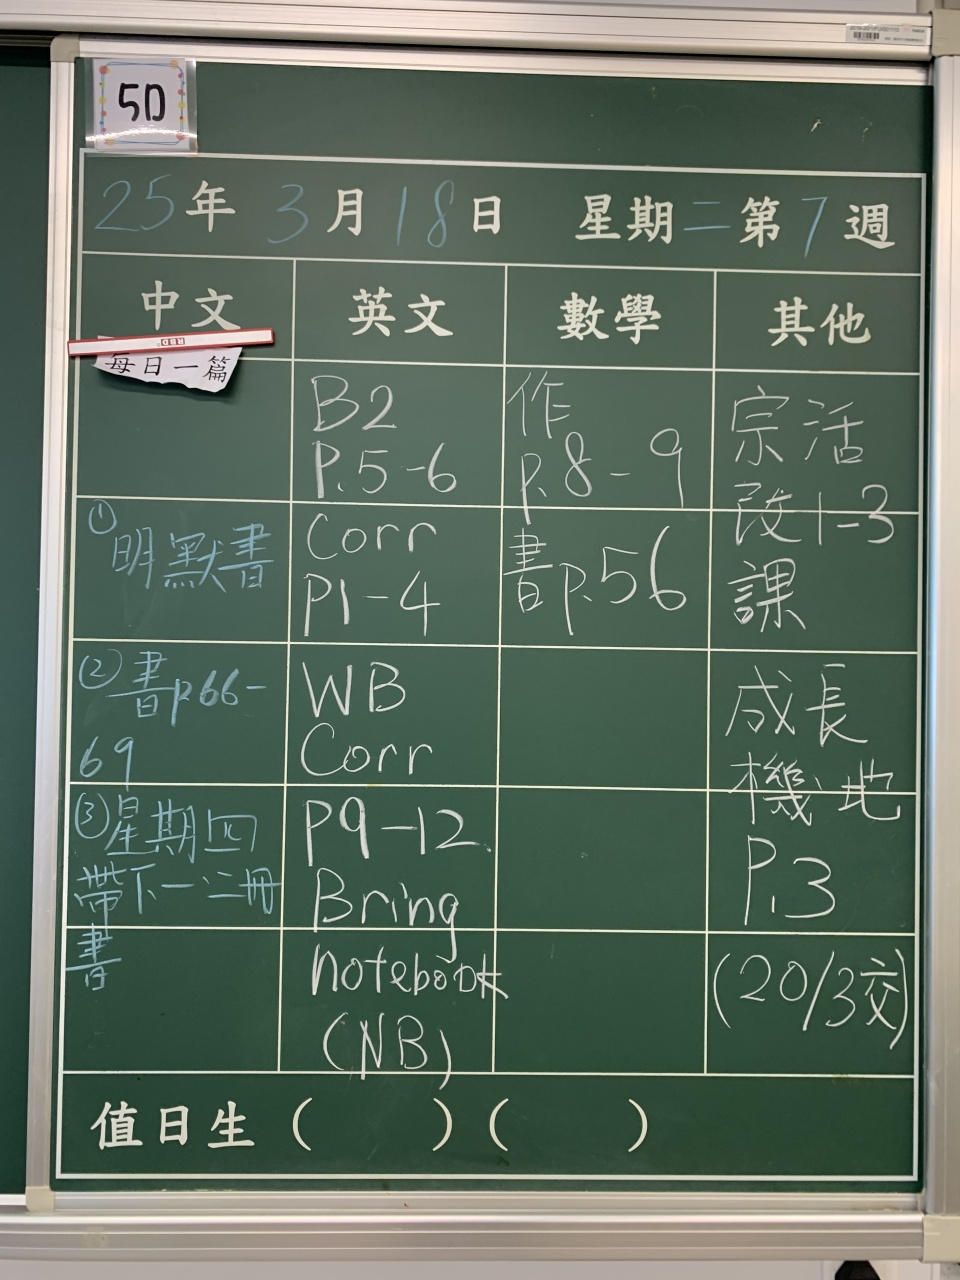 5D
25年 3月18日 星期二第7週
中文 英文 數學 其他
RBD
每日一篇
①明默書
②書p.66-
69
③星期四
帶下一、二冊
書
B2
P.5-6
Corr
P1-4
WB
Corr
P9-12
Bring
notebook
(NB)
作
p.8-9
書p.56
宗活
改1-3
課
成長
機、地
P.3
(20/3交)
值日生( )( )